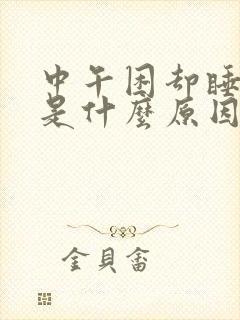 中午困却睡
是什麼原因
金貝畲